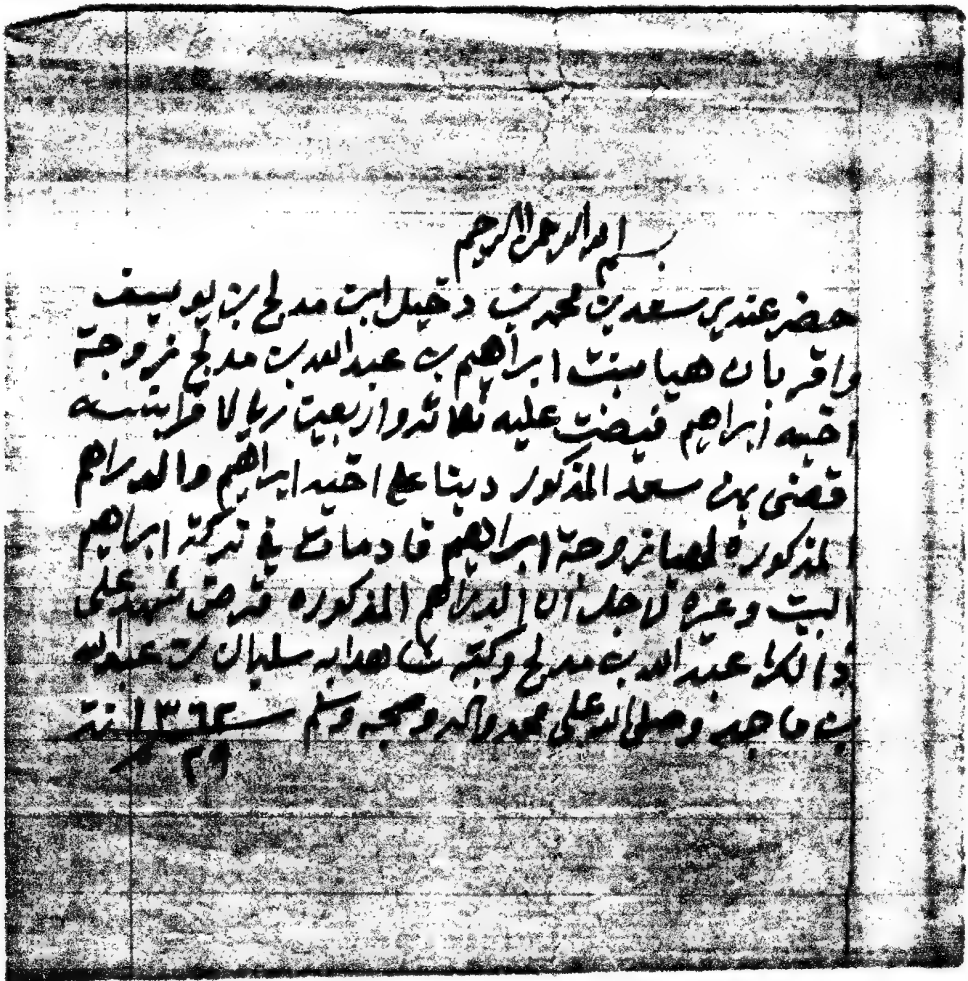 بسم الله الرحمن الرحيم
حضر عندي سعد بن محمد بن دخيل ابن مدلج بن يوسف
واقر بان هيا بنت ابراهيم بن عبدالله بن مدلج زوجة
اخيه ابراهيم عليه ثلاثة واربعين ريالا
سعد المذكور دينا على اخيه ابراهيم والدراهم
المذكوره زوجة ابراهيم في تركة ابراهيم
البيت وغيره لاجل ان الدراهم المذكوره قرض شهد على
ذالك عبدالله بن مدلج وكتبه شاهدا به سليمان بن عبدالله
بن ماجد وصلى الله على محمد واله وصحبه وسلم ١٣٦٢ سنة
٢٩